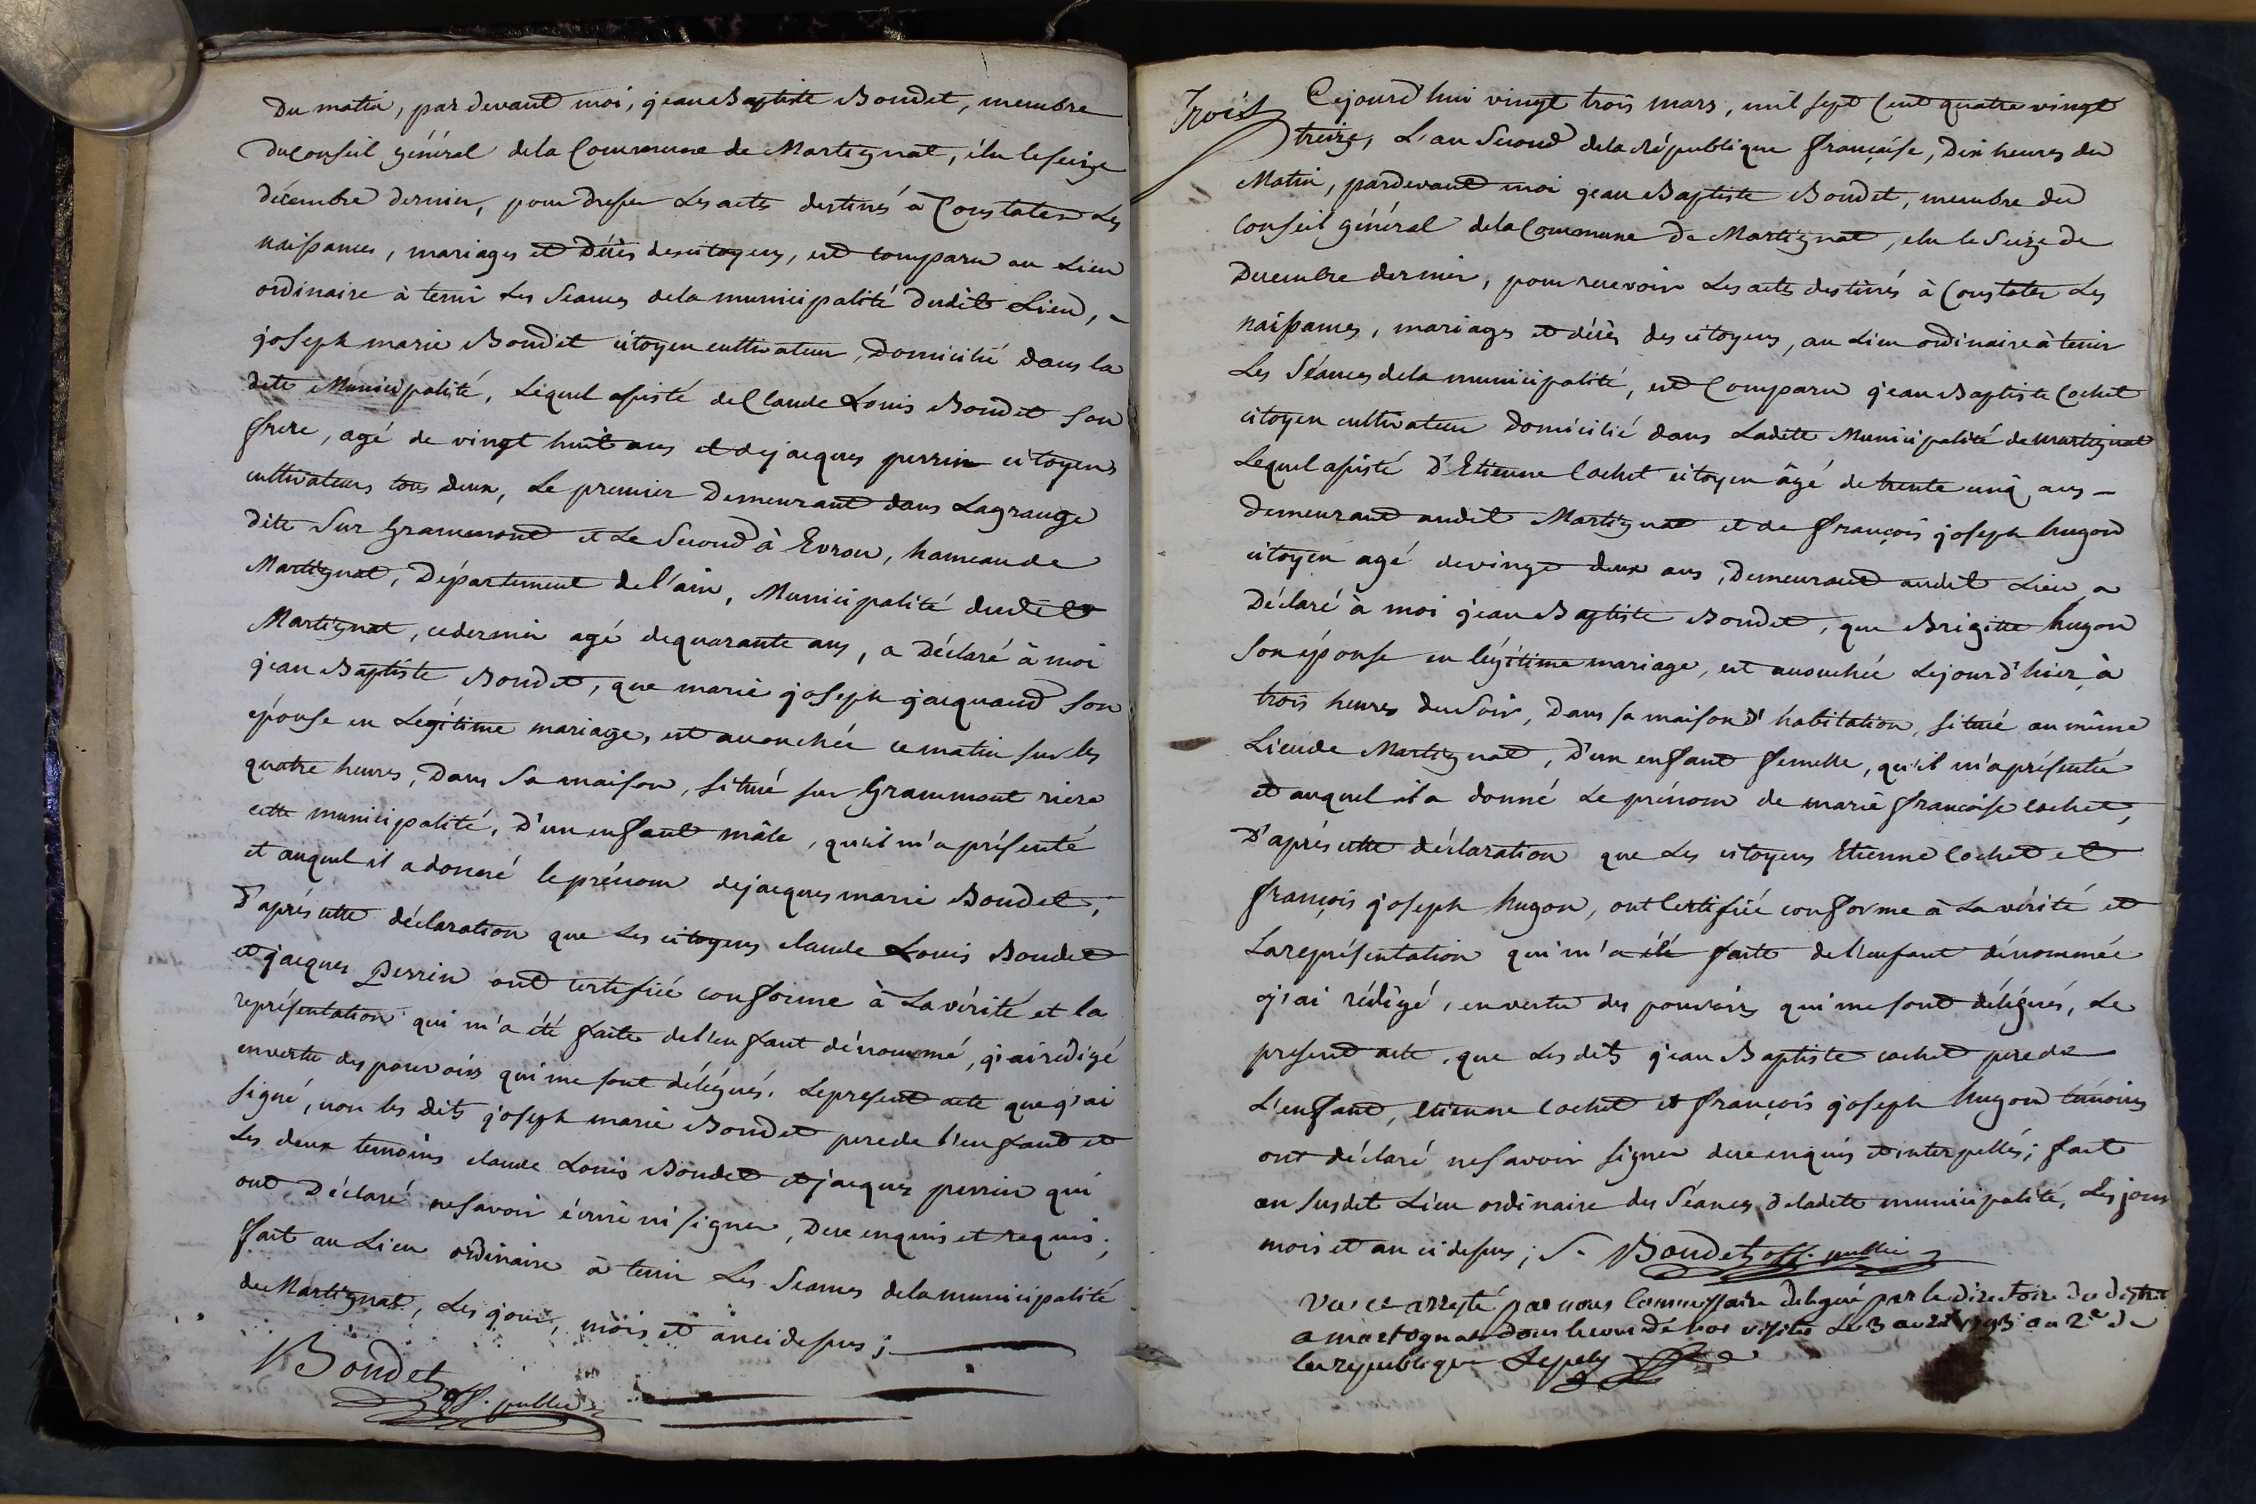 Du matin, par devant moi, jean Baptiste Boudet, membre
Du Conseil général de la Commune de Martignat, élu le seize
décembre dernier, pour dresser Les actes destinés à Constater Les
naissances, mariages et Décès des citoyens, est comparu au Lieu
ordinaire à tenir Les Séances de la municipalité dudit Lieu, -
joseph marie Boudet citoyen cultivateur, Domicilié dans la
dite Municipalité, Lequel assisté de Claude Louis Boudet son
frere, agé de vingt huit ans et de jacques perrin citoyens
cultivateurs tous deux, Le premier Demeurant dans Lagrange
dite Sur Grammont et Le Second à Evron, hameau de
Martignat, Département de l'ain, Municipalité dudit
Martignat, ce dernier agé de quarante ans, a Déclaré à moi
jean Baptiste Boudet, que marie joseph jacquand son
épouse en Légitime mariage, est accouchée ce matin sur les
quatre heures, Dans Sa maison, situé sur Grammont riere
cette municipalité, D'un enfant mâle, qu'il m'a présenté
et auquel il a donné le prénom de jacques marie Boudet,
D'après cette déclaration que Les citoyens claude Louis Boudet
et jacques Perrin ont certifiée conforme à La vérité et la
représentation qui m'a été faite de l'enfant dénommé, j'ai redigé
en vertu des pouvoirs qui me sont délégués, Le présent acte que j'ai
signé, non les dits joseph marie Boudet pere de l'enfant et
Les deux temoins claude Louis Boudet et jacques perrin qui
ont Déclaré ne savoir écrire ni signer, De ce enquis et requis;
fait au Lieu ordinaire à tenir Les Séances de la municipalité
de Martignat, Les jour, mois et an ci dessus;
Boudet off. public
Trois Cejourd'hui vingt trois mars, mil sept Cent quatre vingt
treize, L'an Second de la République française, Dix heures du
Matin, pardevant moi jean Baptiste Boudet, membre du
Conseil général de la Commune de Martignat, élu le Seize de
Decembre dernier, pour recevoir Les actes destinés à Constater Les
naissances, mariages et décès des citoyens, au Lieu ordinaire à tenir
Les Séances de la municipalité, est Comparu jean Baptiste Cochet
citoyen cultivateur Domicilié dans Ladite Municipalité de martignat
Lequel assisté D'Etienne Cochet citoyen âgé de trente cinq ans -
Demeurant audit Martignat et de François joseph hugon
citoyen agé de vingt deux ans, Demeurant audit Lieu, a
Déclaré à moi jean Baptiste Boudet, que Brigitte hugon
Son épouse en légitime mariage, est accouchée Lejourd'hier, à
trois heures du Soir, Dans sa maison d'habitation, situé au même
Lieu de Martignat, D'un enfant femelle, qu'il m'a présentée
et auquel il a donné Le prénom de marie françoise cochet,
D'après cette déclaration que Les citoyens Etienne Cochet et
françois joseph hugon, ont Certifiée conforme à La vérité et
La représentation qui m'a été faite de l'enfant dénommée
j'ai rédigé, en vertu des pouvoirs qui me sont délégués, Le
present acte, que Les dits jean Baptiste cochet pere de
L'enfant, etienne Cochet et françois joseph hugon témoins
ont déclaré ne savoir signer de ce enquis et interpellés; fait
au susdit Lieu ordinaire des Séances de ladite municipalité, Les jour
mois et an ci dessus; S. Boudet off. public
Vu et arresté par nous Commissaire delégué par le directoire du district
a martignat dans le cours de nos visites Le 3 1793 an 2e de
la republique